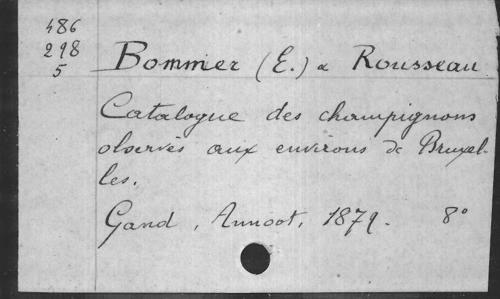 486
298
5
Bommer (E.) & Rousseau
Catalogue des champignons
observés aux environs de Bruxel-
les.
Gand, Annoot, 1879. 8°